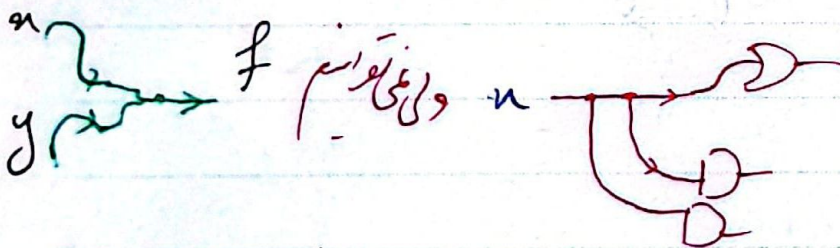 x
y
f
ولی نمی‌توانیم
x